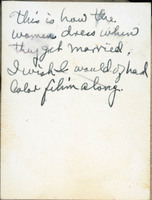 This is how the
women dress when
they get married.
I wish I would of had
Color film along.